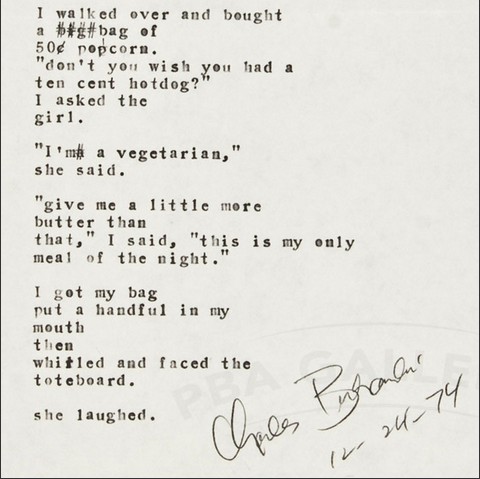 I walked over and bought
a ##g#bag of
50¢ popcorn.
"don't you wish you had a
ten cent hotdog?"
I asked the
girl.
"I'm# a vegetarian,"
she said.
"give me a little more
butter than
that," I said, "this is my only
meal of the night."
I got my bag
put a handful in my
mouth
then
whirled and faced the
toteboard.
she laughed.
PBA GALLE
Charles Bukowski
12-24-74